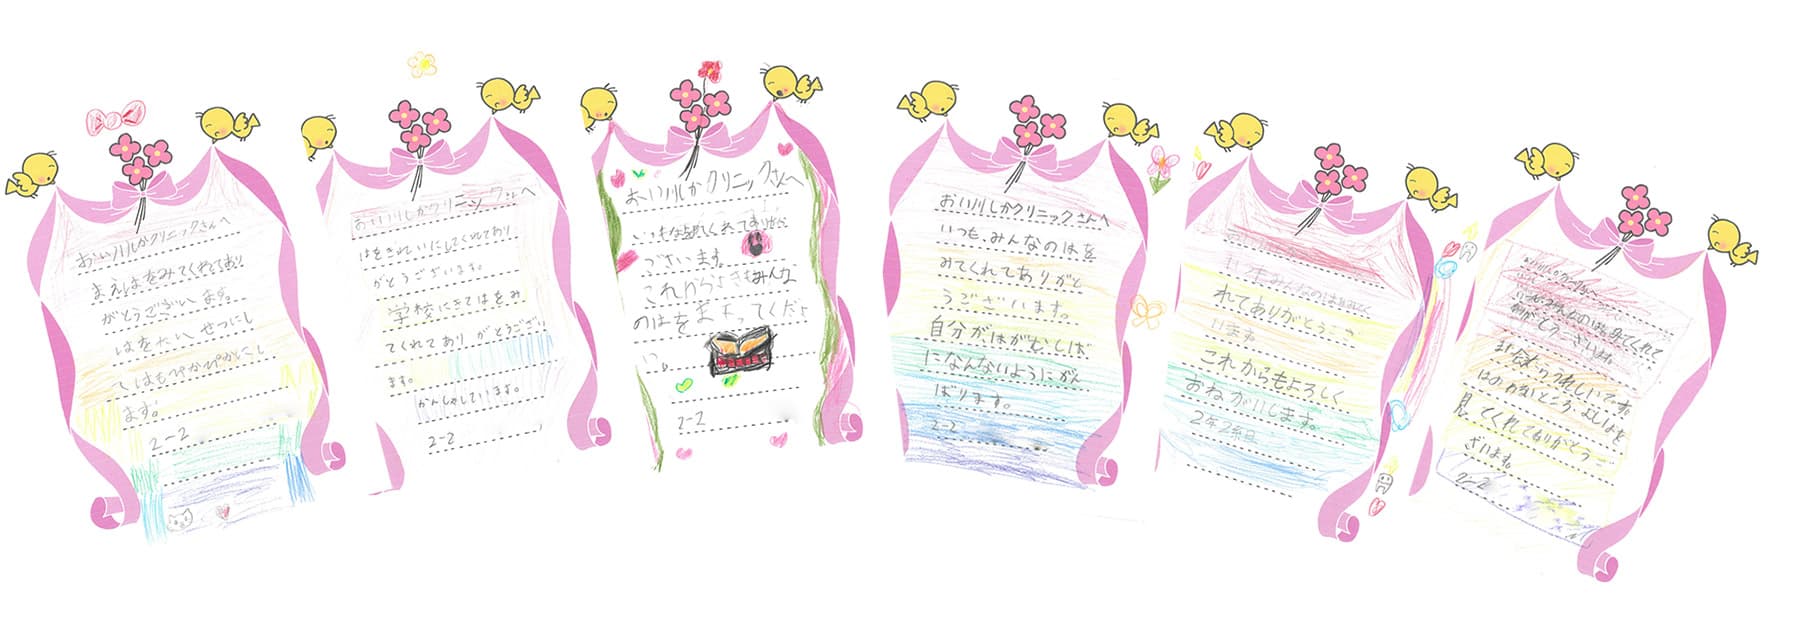 おい川しかクリニックさんへ
まえはをみてくれてあり
がとうございます。
はをたいせつにし
てはもぴかぴかにし
ます。
2-2
おい川しかクリニックさんへ
はをきれいにしてくれてあり
がとうございます。
学校にきてはをみ
てくれてありがとうござい
ます。
かんしゃしています。
2-2
おい川しかクリニックさんへ
いつもな観てくれてありがと
うございます。
これからよきもみんな
のはをまもってくだょ
い。
2-2
おい川しかクリニックさんへ
いつも、みんなのはを
みてくれてありがと
うございます。
自分がはがむしば
になんないようにがん
ばります。
2-2
みんなのはをみてく
れてありがとうご
います
これからもよろしく
おねがいします。
2年2組
みんなのはを見てくれて
ありがとうございます。
またきたらうれしいです。
はのわるいところ、よしはを
見てくれてありがとうご
ざいます。
2-2